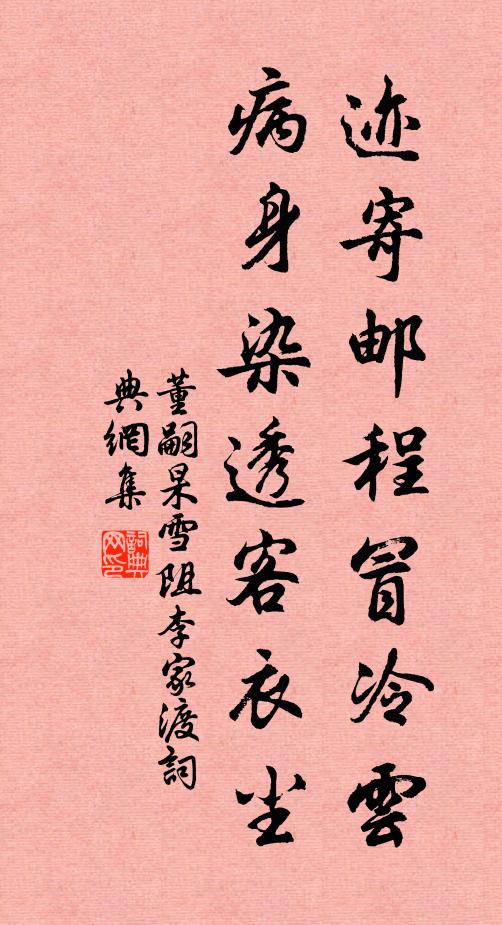 迹寄邮程冒冷雲
病身染透客衣尘
董嗣杲雪阻李家渡詞
典網集
詞典网印